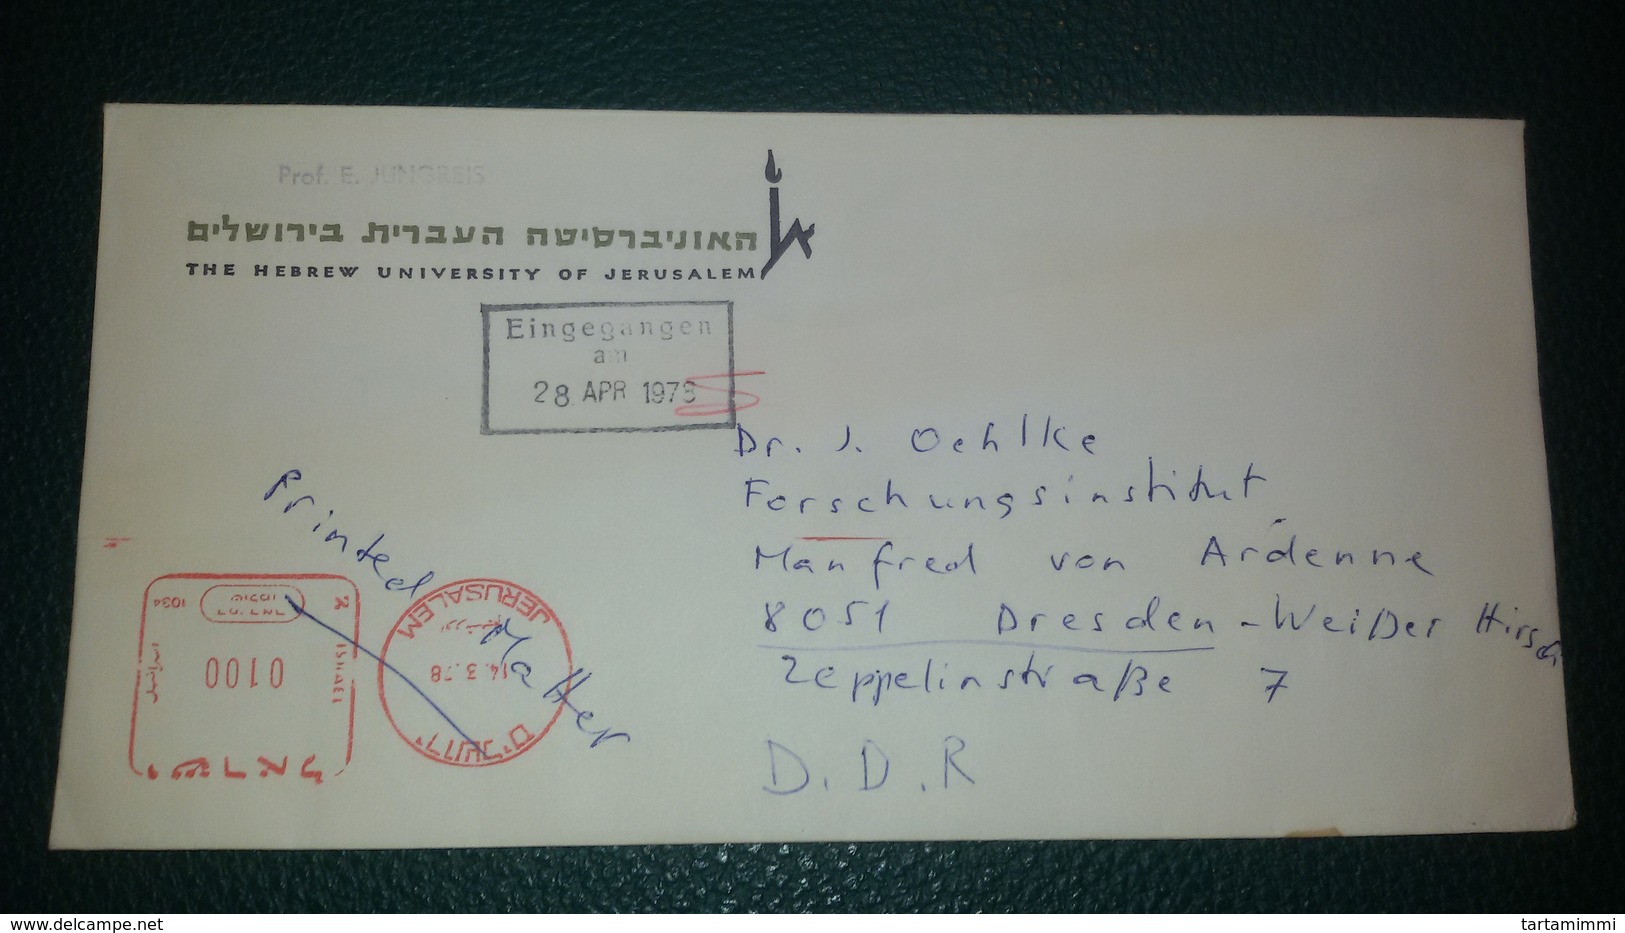 Prof. E. JUNGREIS
האוניברסיטה העברית בירושלים
THE HEBREW UNIVERSITY OF JERUSALEM
Eingegangen
am
28 APR 1978
Dr. J. Oehlke
Forschungsinstitut
Manfred von Ardenne
8051 Dresden-Weißer Hirsch
Zeppelinstraße 7
D.D.R
Printed Matter
ישראל
0100
ISRAEL
اسرائيل
דמי דאר
שולמו
1034
א
ירושלים
14.3.78
JERUSALEM
www.delcampe.net
tartamimmi